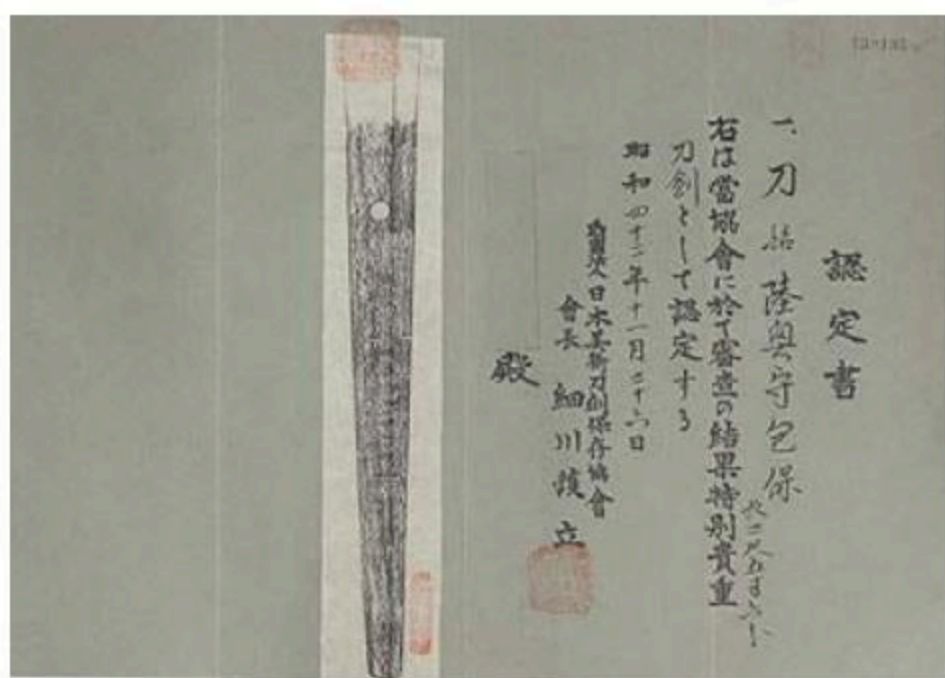 認定書
一、刀 銘 陸奥守包保
長二尺五寸六分
右は當協會に於て審査の結果特別貴重
刀剣として認定する
昭和四十二年十一月二十六日
財團法人日本美術刀剣保存協會
會長 細川護立
殿